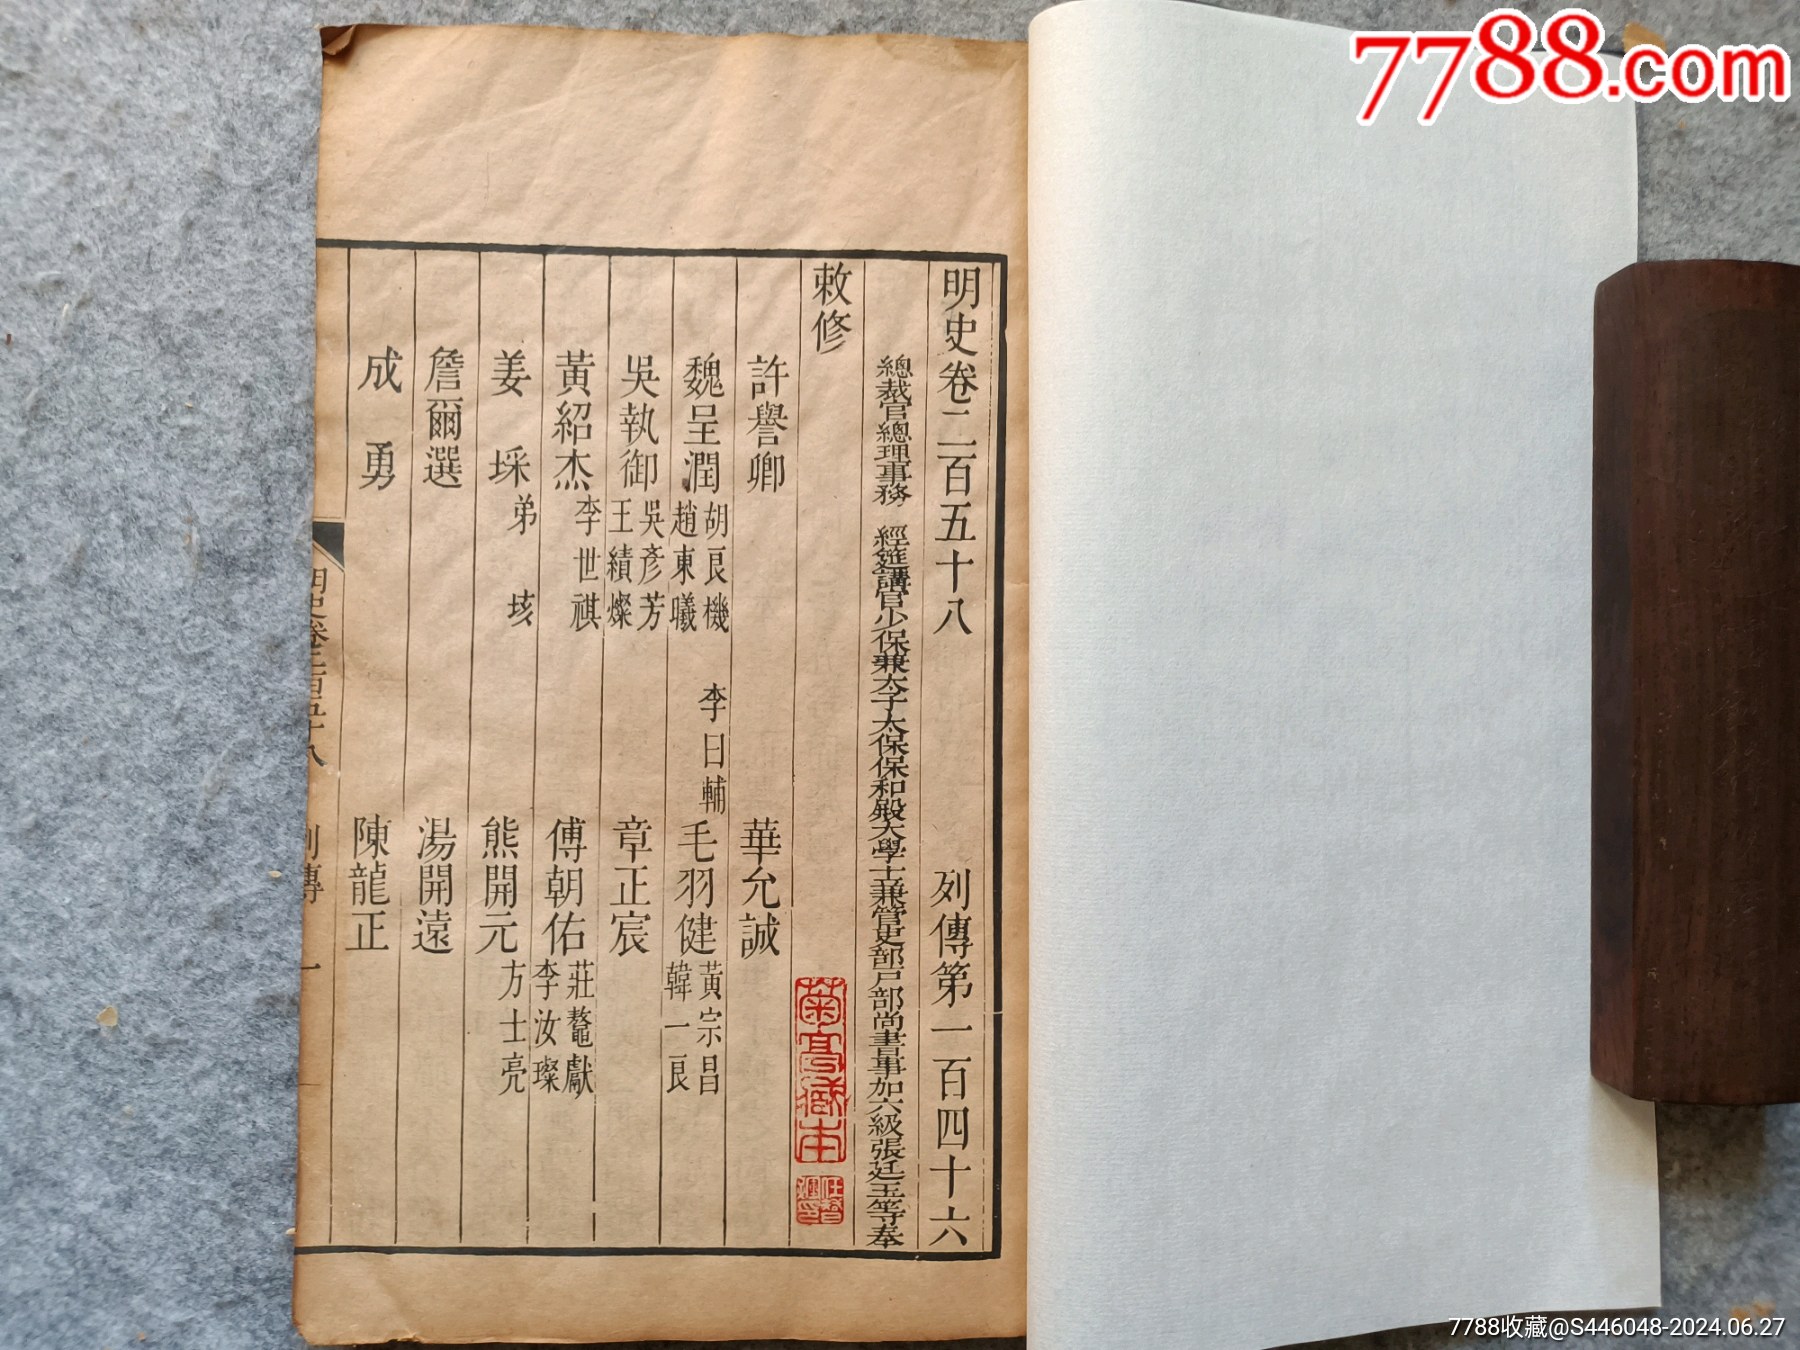 7788.com
明史卷二百五十八 列傳第一百四十六
總裁官總理事務 經筵講官少保兼太子太保保和殿大學士兼管吏部戶部尚書事加六級張廷玉等奉
敕修
許譽卿 華允誠
魏呈潤 胡良機 趙東曦 李日輔 毛羽健 黃宗昌 韓一良
吳執御 吳彥芳 王績燦 章正宸
黃紹杰 李世祺 傅朝佑 莊鼇獻 李汝璨
姜埰 弟垓 熊開元 方士亮
詹爾選 湯開遠
成勇 陳龍正
明史卷二百五十八 列傳 一
菊高藏本
7788收藏@S446048-2024.06.27